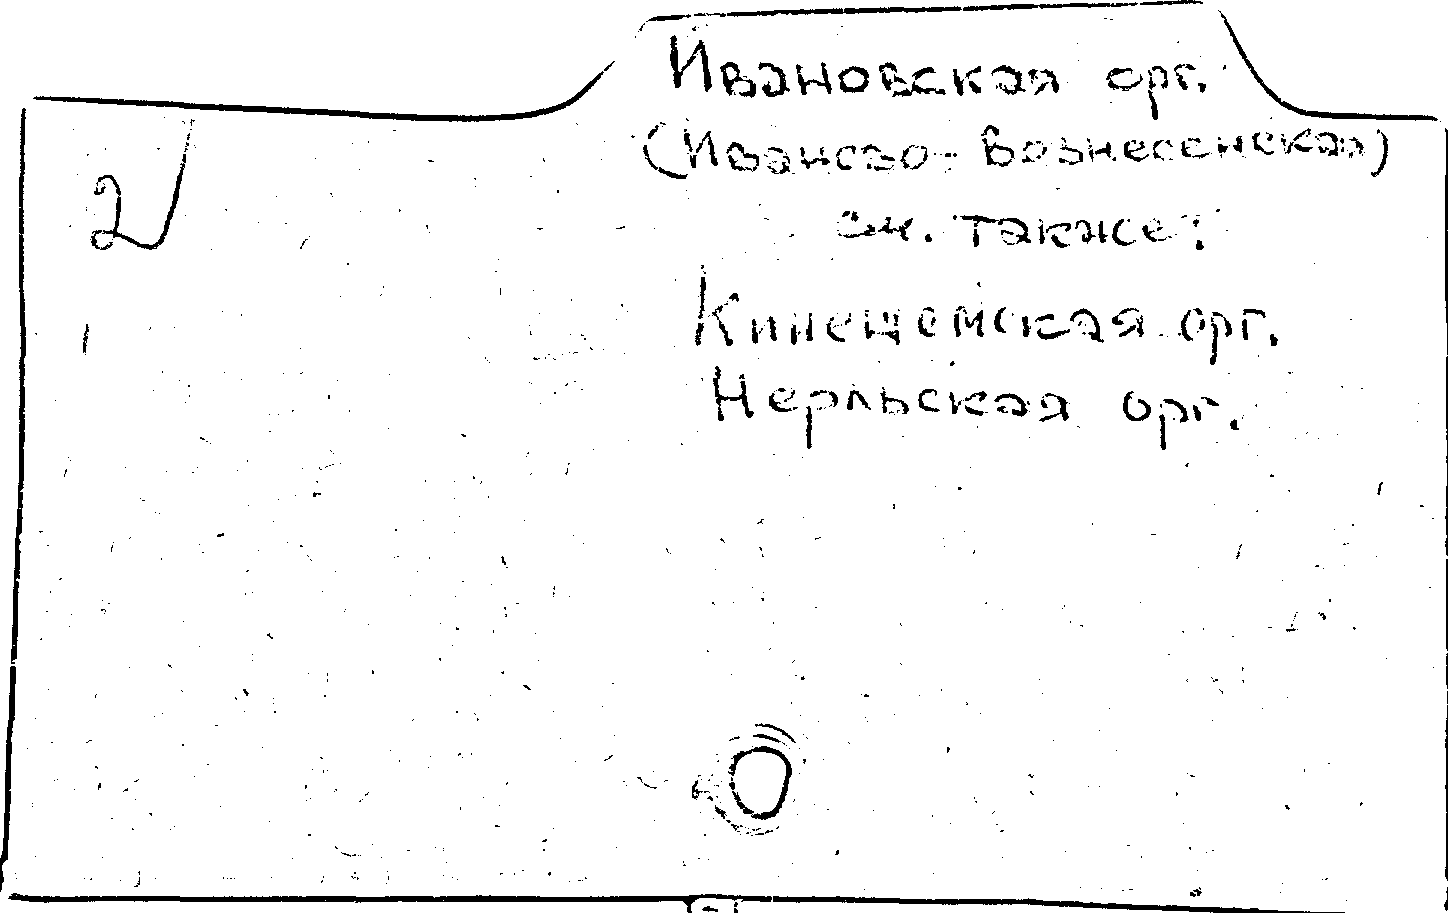 Ивановская орг.
(Иваново-Вознесенская)
2
см. также:
Кинешемская орг.
Нерльская орг.